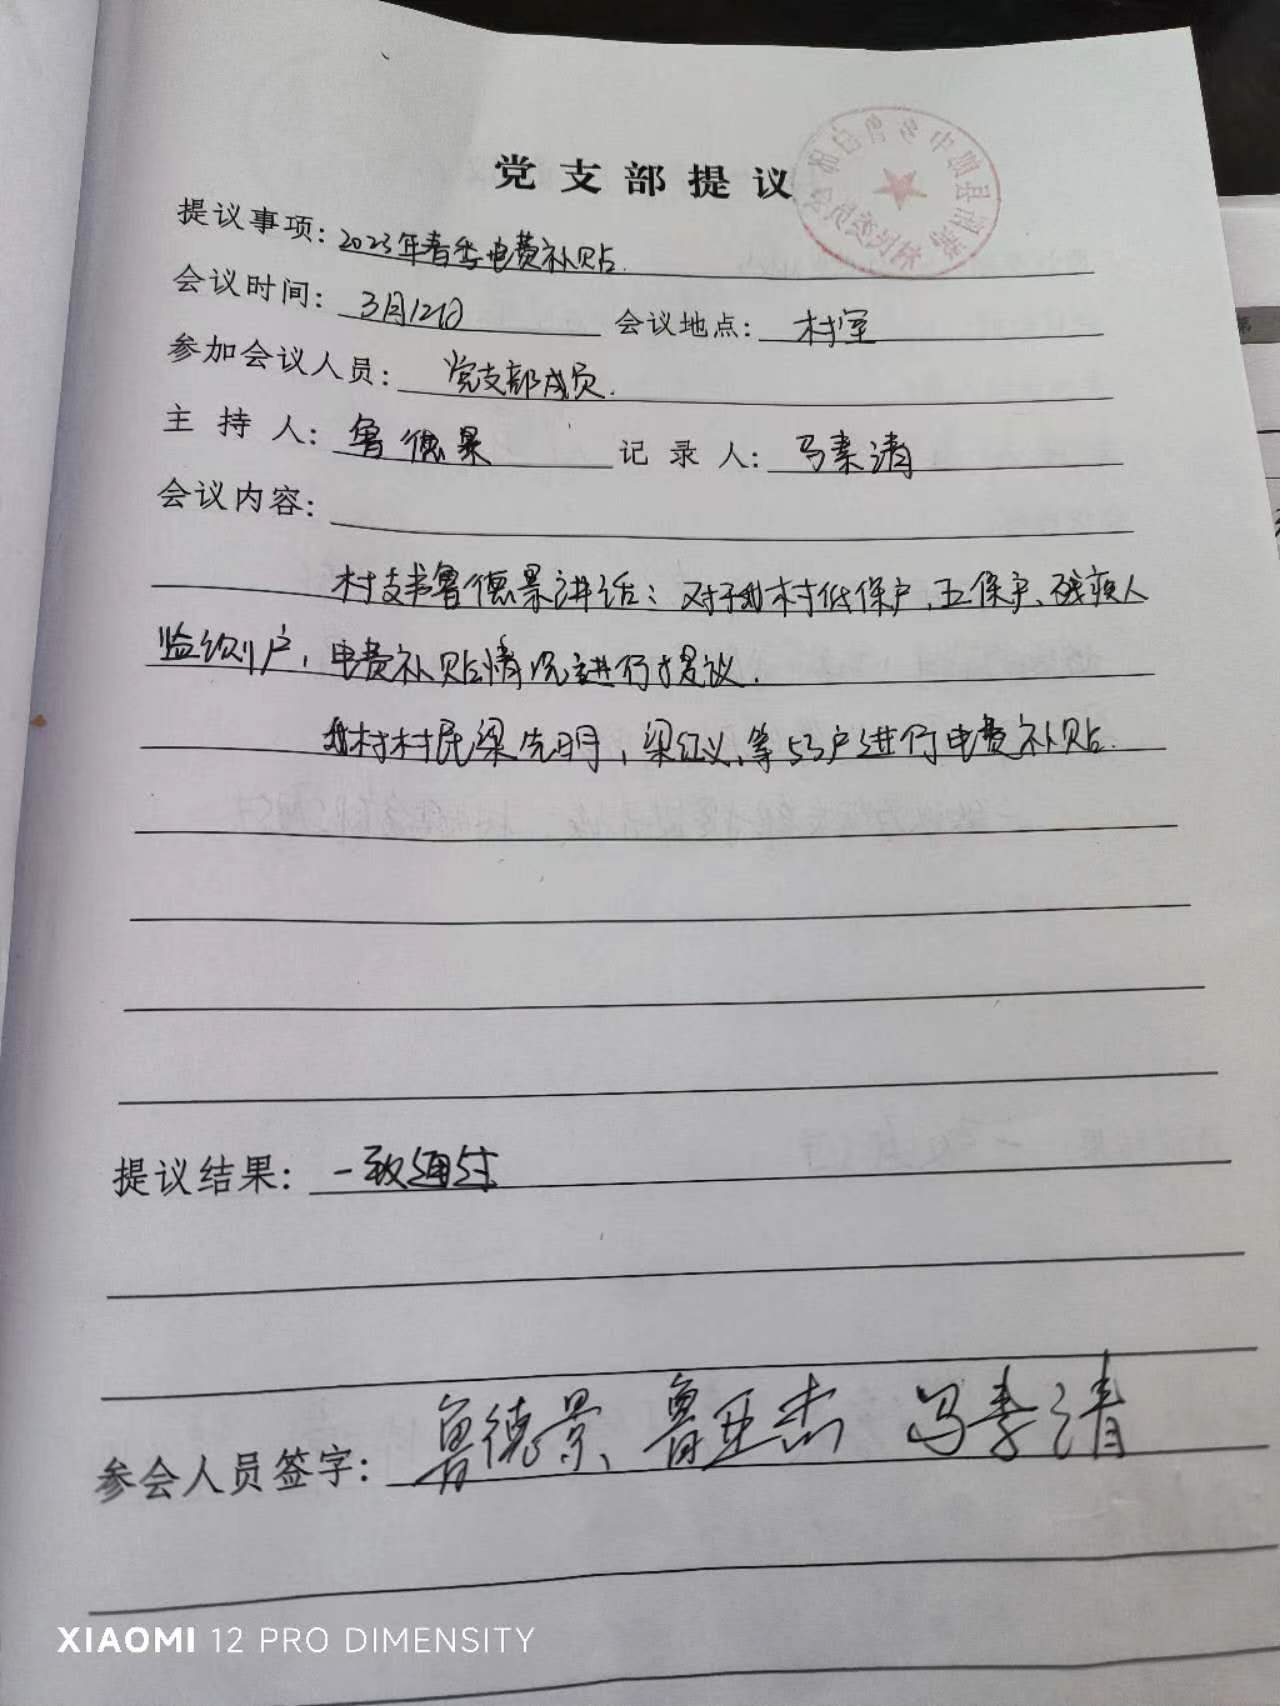 党支部提议
提议事项: 2023年春季电费补贴.
会议时间: 3月12日 会议地点: 村室
参加会议人员: 党支部成员.
主持人: 鲁德景 记录人: 冯素清
会议内容:
村支书鲁德景讲话: 对于我村低保户、五保户、残疾人
监测户, 电费补贴情况进行提议.
我村村民梁先明, 梁红义、等53户进行电费补贴.
提议结果: 一致通过
参会人员签字: 鲁德景、鲁亚杰 冯素清
XIAOMI 12 PRO DIMENSITY